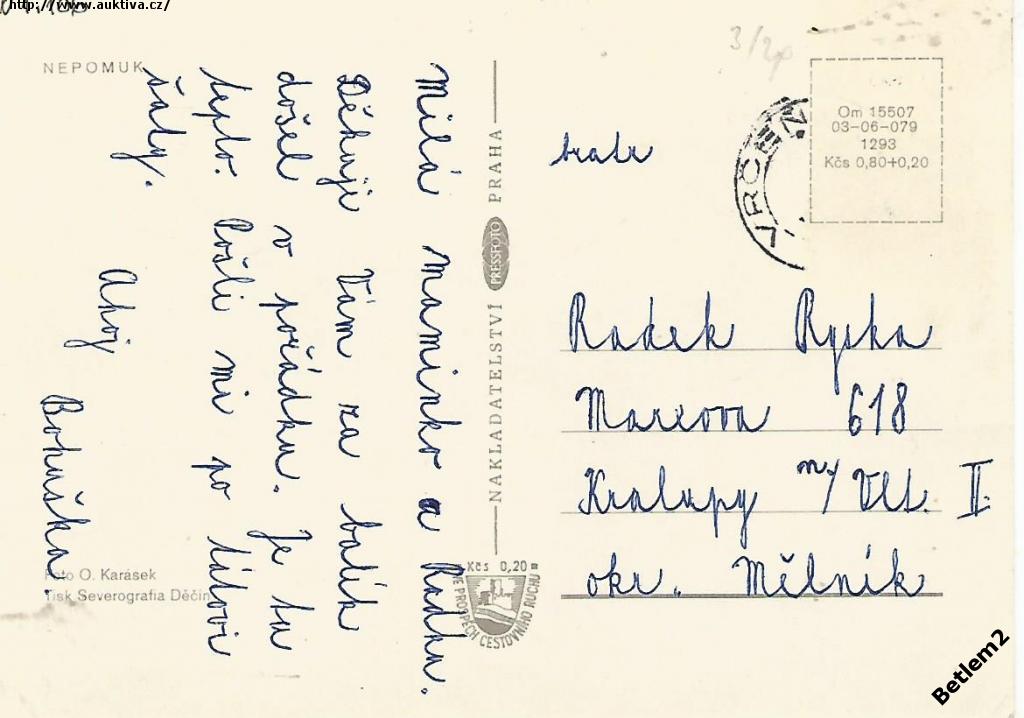 http://www.auktiva.cz/
NEPOMUK
Milá maminko a Radku.
Děkuji Vám za balík
došel v pořádku. Je tu
teplo. Pošli mi po tátovi
šaty.
Ahoj
Bohuška.
Foto O. Karásek
Tisk Severografia Děčín
NAKLADATELSTVÍ PRESSFOTO PRAHA
Kčs 0,20
VE PROSPĚCH CESTOVNÍHO RUCHU
3/2p
VRČEŇ
Om 15507
03-06-079
1293
Kčs 0,80+0,20
bratr
Radek Ryska
Marxova 618
Kralupy n/ Vlt. II.
okr. Mělník
Betlem2